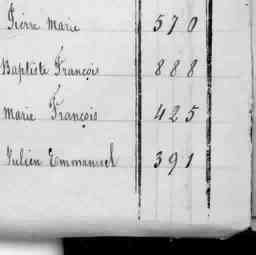 Pierre Marie 570
Baptiste François 888
Marie François 425
Julien Emmanuel 391